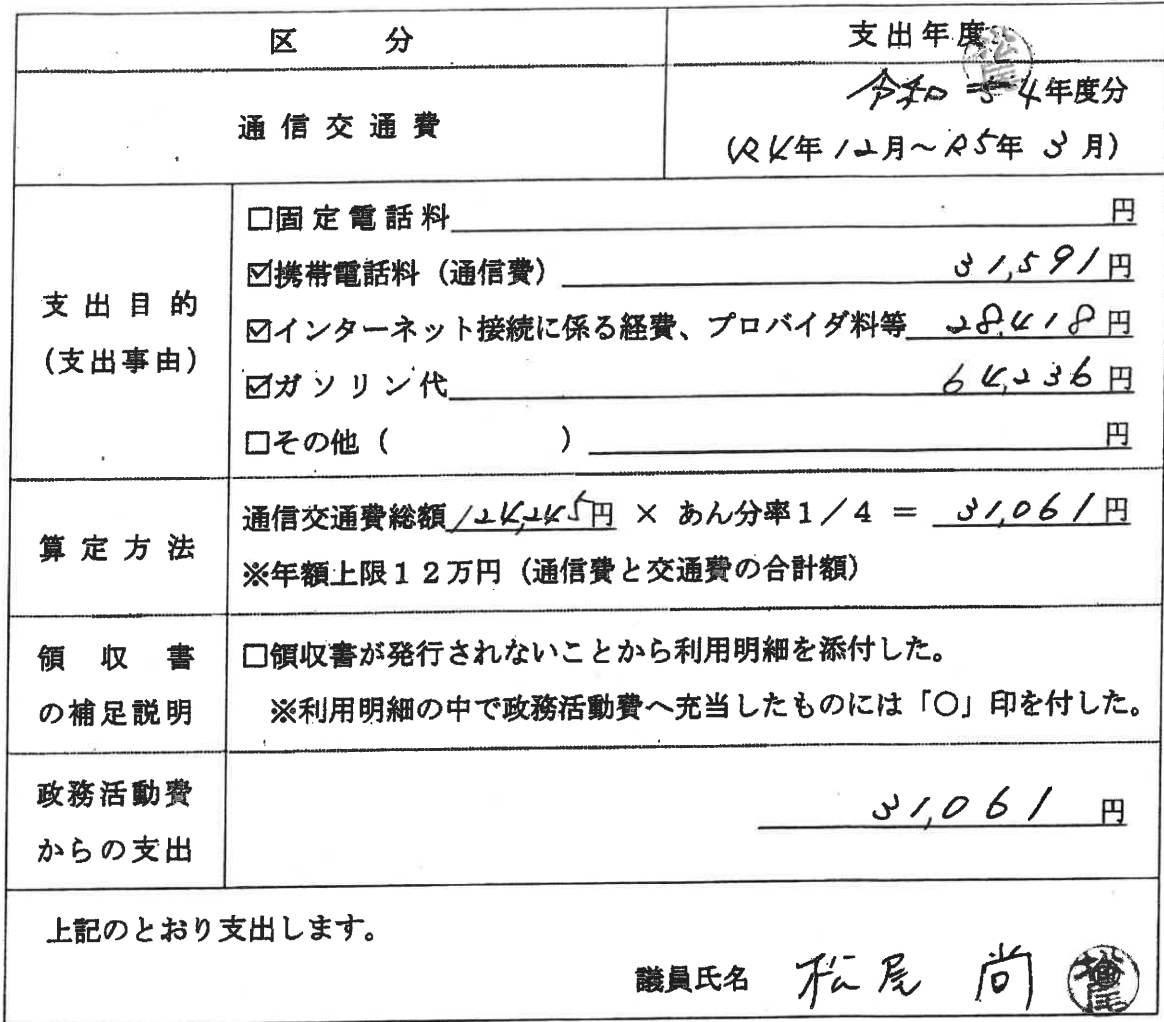 区 分 支出年度
通信交通費 令和 4年度分
(R4年12月~R5年 3月)
支出目的
(支出事由)
□固定電話料 円
☑携帯電話料(通信費) 31,591円
☑インターネット接続に係る経費、プロバイダ料等 28,418円
☑ガソリン代 64,236円
□その他( ) 円
算定方法
通信交通費総額 124,245円 × あん分率1/4 = 31,061円
※年額上限12万円(通信費と交通費の合計額)
領収書
の補足説明
□領収書が発行されないことから利用明細を添付した。
※利用明細の中で政務活動費へ充当したものには「○」印を付した。
政務活動費
からの支出
31,061 円
上記のとおり支出します。
議員氏名 松尾 尚 松尾